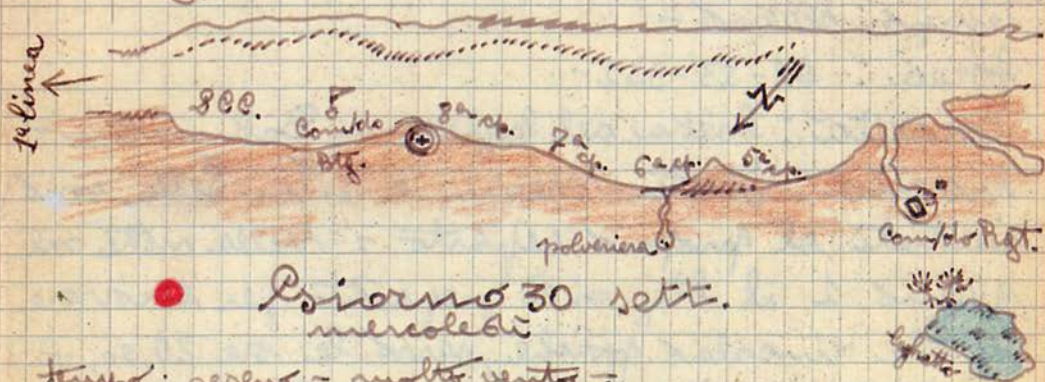 1ª linea
8 C.C.
Com/do
Btg.
8ª cp.
7ª cp.
6ª cp.
5ª cp.
N
polveriera
Com/do Rgt.
Giorno 30 sett.
mercoledì
laghetto
tempo: sereno - molto vento -